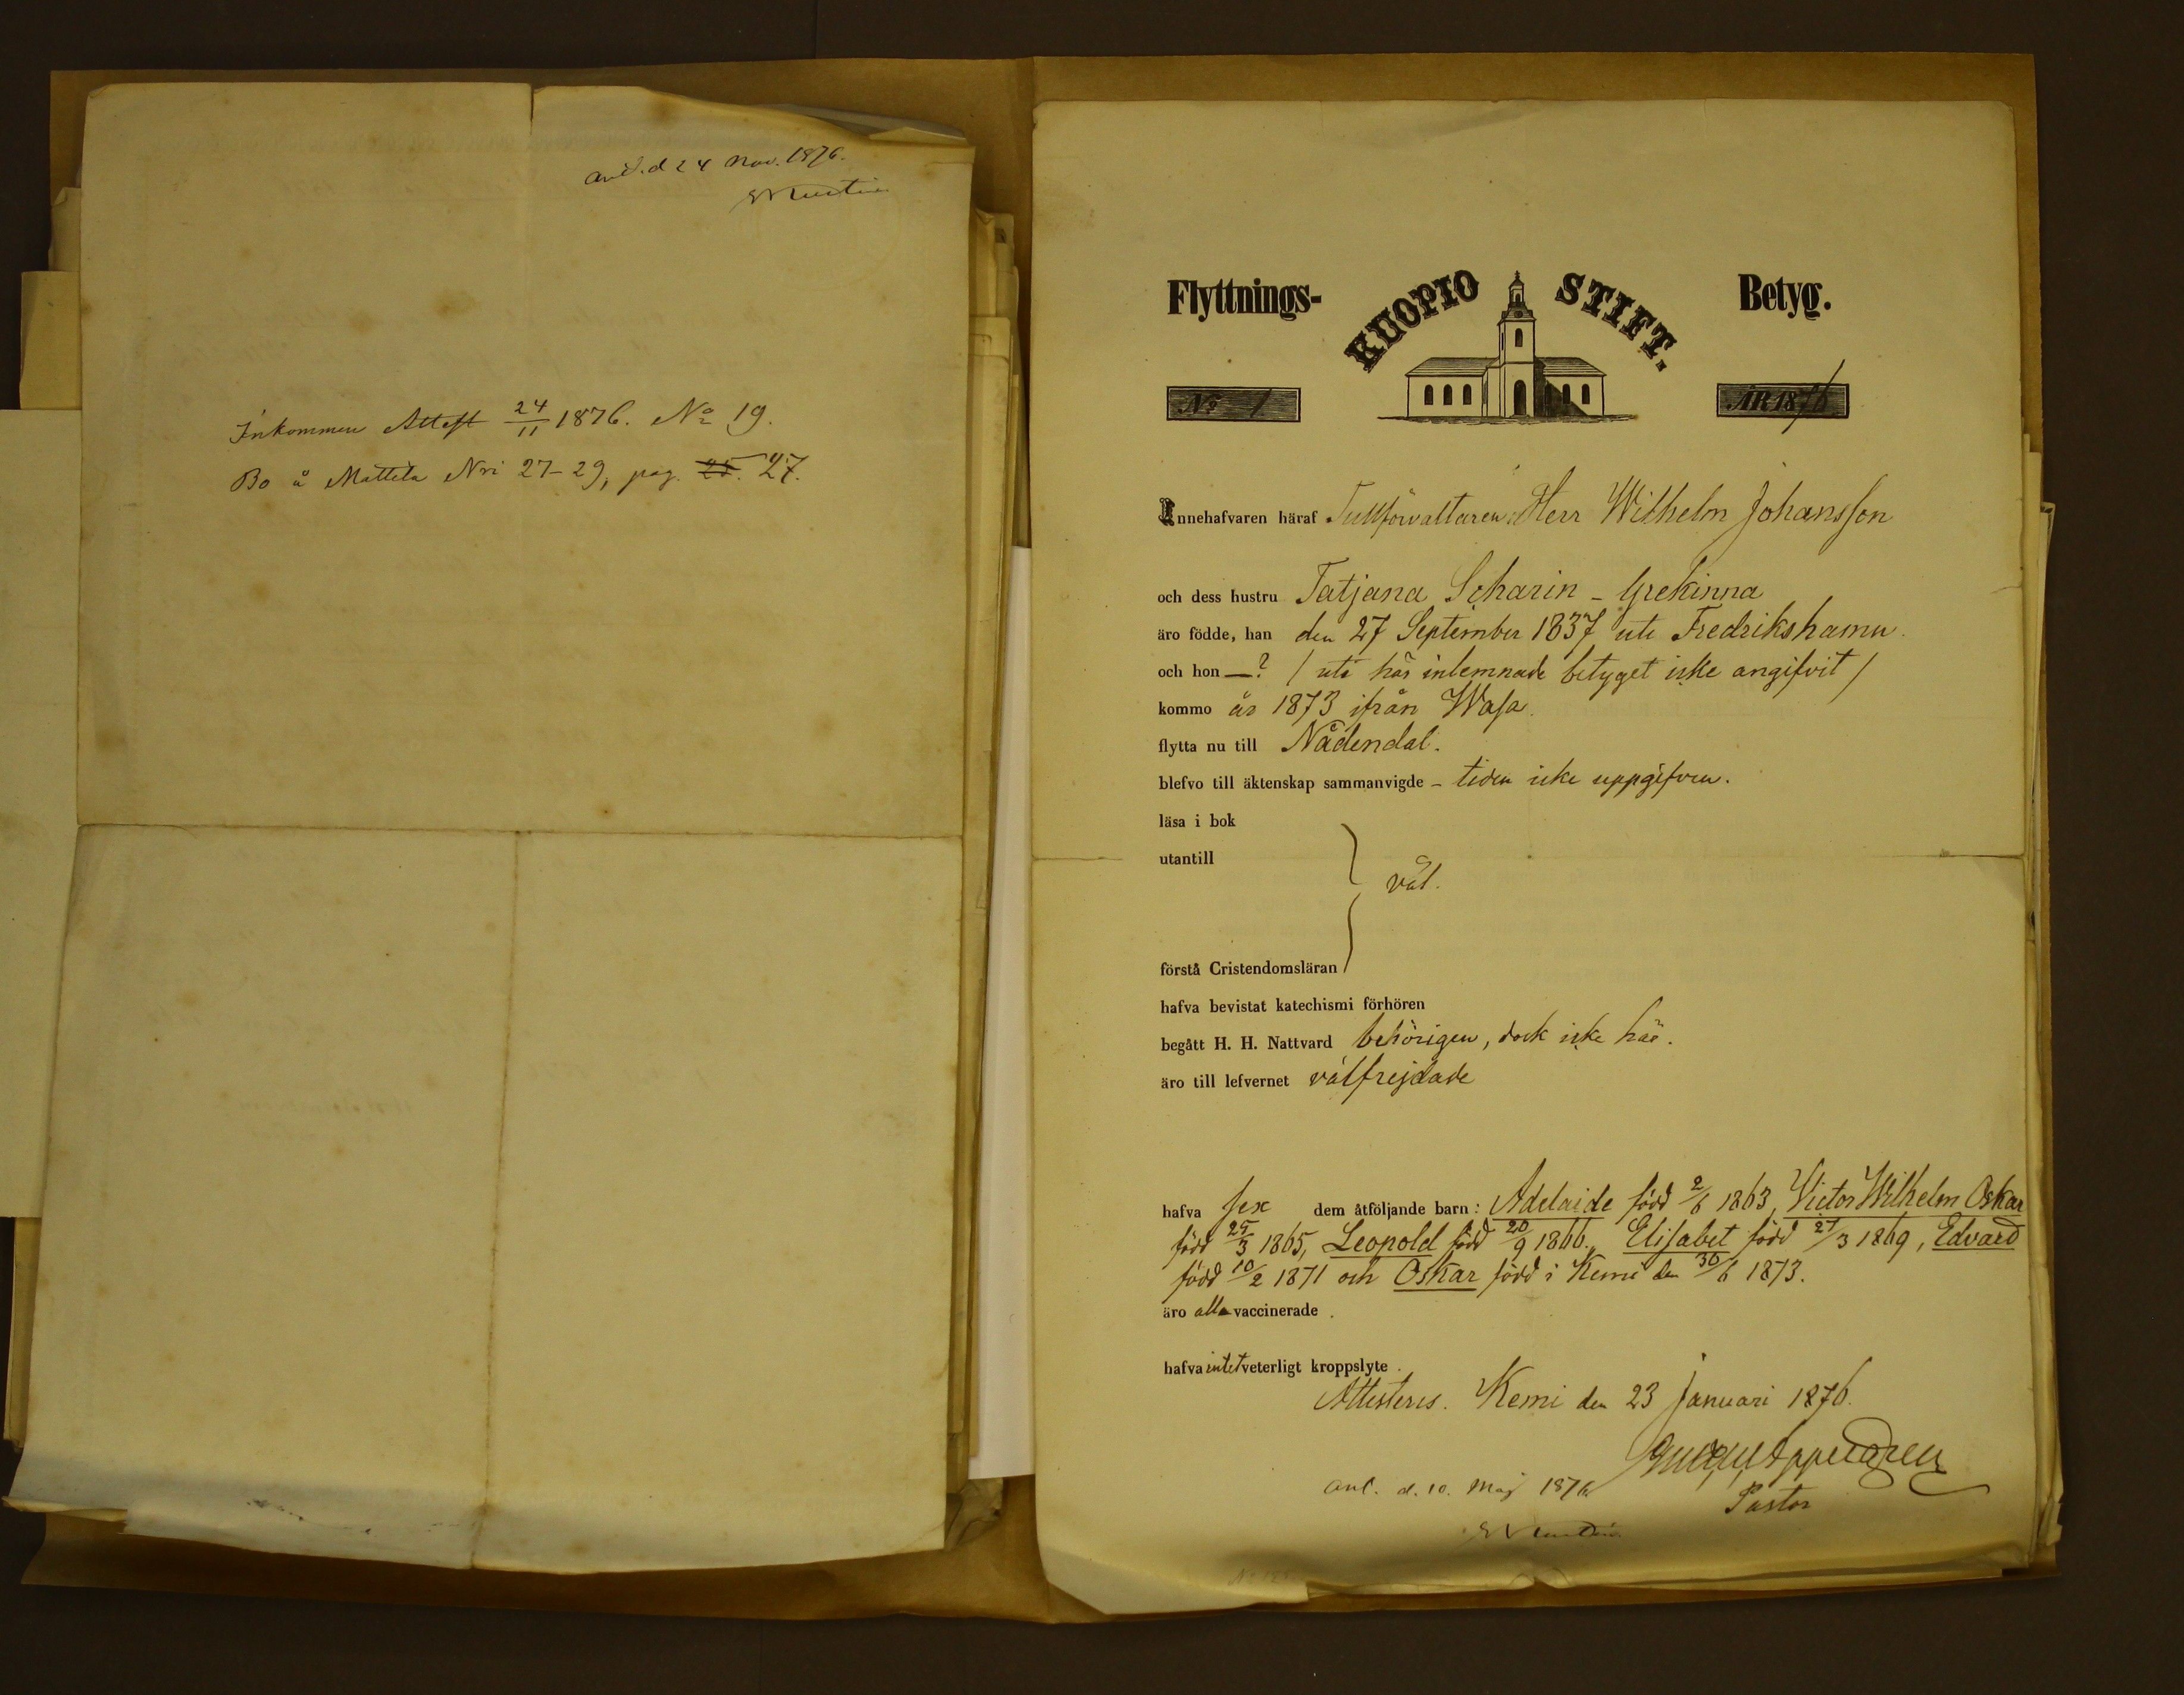 anl. d 24 Nov. 1876.
Inkommen Attest 24/11 1876. No 19.
Bo å Mattila Nri 27-29, pag. 25. 27.
Flyttnings- KUOPIO STIFT. Betyg.
No 1 ÅR 1876
Innehafvaren häraf Tullförvaltaren Herr Wilhelm Johansson
och dess hustru Tatjana Scharin - Grekinna
äro födde, han den 27 September 1837 uti Fredrikshamn.
och hon —? / uti här inlemnade betyget icke angifvit /
kommo år 1873 ifrån Wasa.
flytta nu till Nådendal.
blefvo till äktenskap sammanvigde - tiden icke uppgifven.
läsa i bok
utantill
väl.
förstå Cristendomsläran
hafva bevistat katechismi förhören
begått H. H. Nattvard behörigen, dock icke här.
äro till lefvernet välfrejdade
hafva sex dem åtföljande barn: Adelaide född 2/6 1863, Victor Wilhelm Oskar
född 25/3 1865, Leopold född 20/9 1866, Elisabet född 27/3 1869, Edvard
född 10/2 1871 och Oskar född i Kemi den 30/6 1873.
äro alla vaccinerade.
hafva intet veterligt kroppslyte.
Attesteres. Kemi den 23 Januari 1876.
Pastor
anl. d. 10. Maj 1876